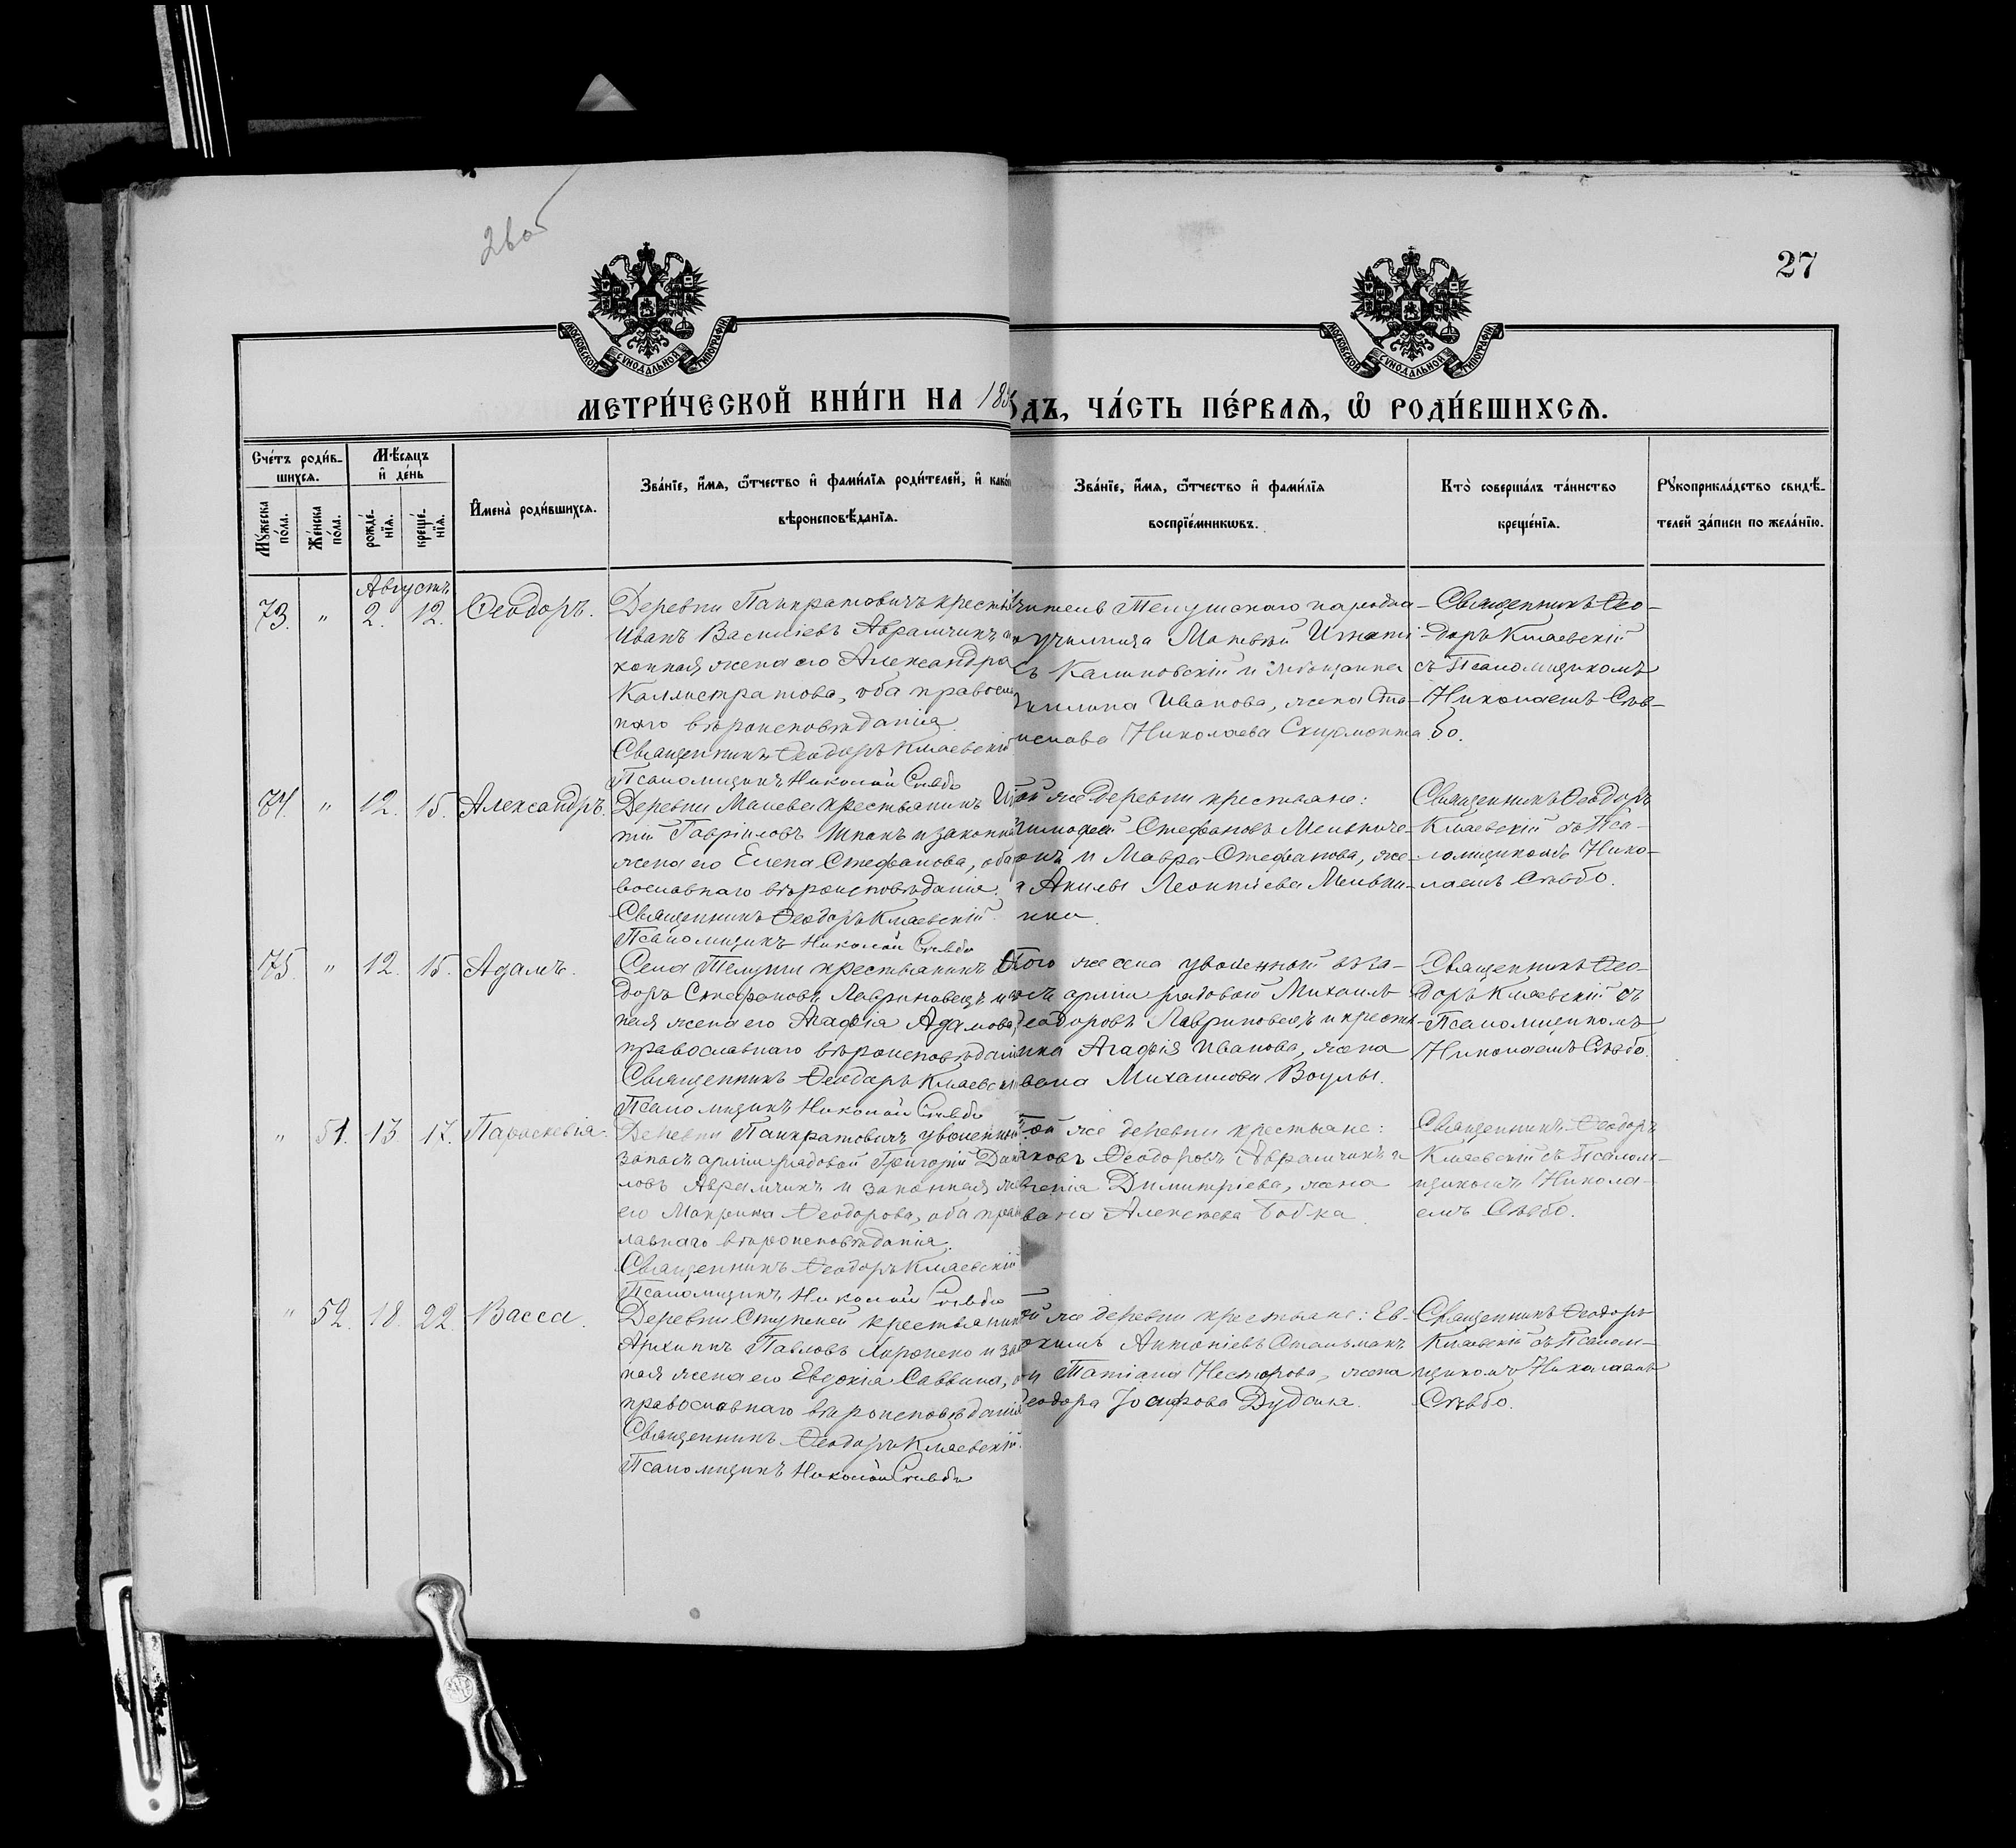 27
МОСКОВСКОЙ СУНОДАЛЬНОЙ ТИПОГРАФІИ
МОСКОВСКОЙ СУНОДАЛЬНОЙ ТИПОГРАФІИ
МЕТРИ́ЧЕСКОЙ КНИ́ГИ НА 18
ДЪ, ЧА́СТЬ ПЕ́РВАЯ, Ѡ҆ РОДИ́ВШИХСЯ.
Сче́тъ роди́в-
шихся.
Мѣ́сяцъ
и҆ де́нь
Мꙋ́жеска по́ла.
Же́нска по́ла.
рожде́-нїя.
креще́-нїя.
И҆мена̀ роди́вшихся.
Зва́нїе, и҆́мя, ѻ҆́тчество и҆ фами́лїя роди́телей, и҆ како
вѣроисповѣ́данїя.
Зва́нїе, и҆́мя, ѻ҆́тчество и҆ фами́лїя
воспрїе́мникѡвъ.
Кто̀ соверша́лъ та́инство
креще́нїя.
Рꙋкоприкла́дство свидѣ́-
телей за́писи по жела́нїю.
Августъ
73. " 2. 12. Ѳеодоръ.
Деревни Панкратовичъ кресть
Иванъ Василіевъ Абрамчикъ
конная жена его Александра
Каллистратова, оба правосл
наго вѣроисповѣданія.
Священникъ Ѳеодоръ Кмаевскій
Псаломщикъ Николай Съвбо
читель Телушскаго народна-
училища Матвѣй Игнаті-
Калиновскій и мѣщанка
Иванова, жена Ста-
ислава Николаева Скирмонта
Священникъ Ѳео-
доръ Кмаевскій
съ Псаломщикомъ
Николаемъ Съв-
бо.
74. " 12. 15. Александръ.
Деревни Малева крестьянинъ
тій Гавріиловъ Шпакъ и законна
жена его Елена Стефанова, оба
вославнаго вѣроисповѣданія.
Священникъ Ѳеодоръ Кмаевскій
Псаломщикъ Николай Съвбо
ой же деревни крестьяне:
Тимофей Стефановъ Мельниче-
и Мавра Стефанова, же-
а Акилы Леонтіева Мельни-
Священникъ Ѳеодоръ
Кмаевскій съ Пса-
ломщикомъ Нико-
лаемъ Съвбо.
75. " 12. 15. Адамъ.
Села Телуши крестьянинъ Ѳ
доръ Стефановъ Лавриновецъ и
ная жена его Агафія Адамова,
православнаго вѣроисповѣдан
Священникъ Ѳеодоръ Кмаевск
Псаломщикъ Николай Съвбо
того же села уволенный въ за-
асъ арміи рядовой Михаилъ
Ѳеодоровъ Лавриновецъ и кресть-
нка Агафія Иванова, жена
вана Михаилова Воулы.
Священникъ Ѳео-
доръ Кмаевскій съ
Псаломщикомъ
Николаемъ Съвбо.
" 51. 13. 17. Параскевія.
Деревни Панкратовичъ уволенный
запасъ арміи рядовой Григорій Дан
ловъ Абрамчикъ и законная же
его Макрина Ѳеодорова, оба прав
лавнаго вѣроисповѣданія.
Священникъ Ѳеодоръ Кмаевскій
Псаломщикъ Николай Съвбо
той же деревни крестьяне:
аковъ Ѳеодоровъ Абрамчикъ и
вгенія Димитріева, жена
вана Алексѣева Бобка.
Священникъ Ѳеодоръ
Кмаевскій съ Псалом-
щикомъ Никола-
емъ Съвбо.
" 52. 18. 22. Васса.
Деревни Ступеней крестьянин
Архипъ Павловъ Хоронеко и за
ная жена его Евдокія Саввина,
православнаго вѣроисповѣдані
Священникъ Ѳеодоръ Кмаевскій
Псаломщикъ Николай Съвбо
ой же деревни крестьяне: Ев-
окимъ Антоніевъ Стальмакъ
и Татіана Несторова, жена
Ѳеодора Іосифова Дудана.
Священникъ Ѳеодоръ
Кмаевскій съ Псалом-
щикомъ Николаемъ
Съвбо.